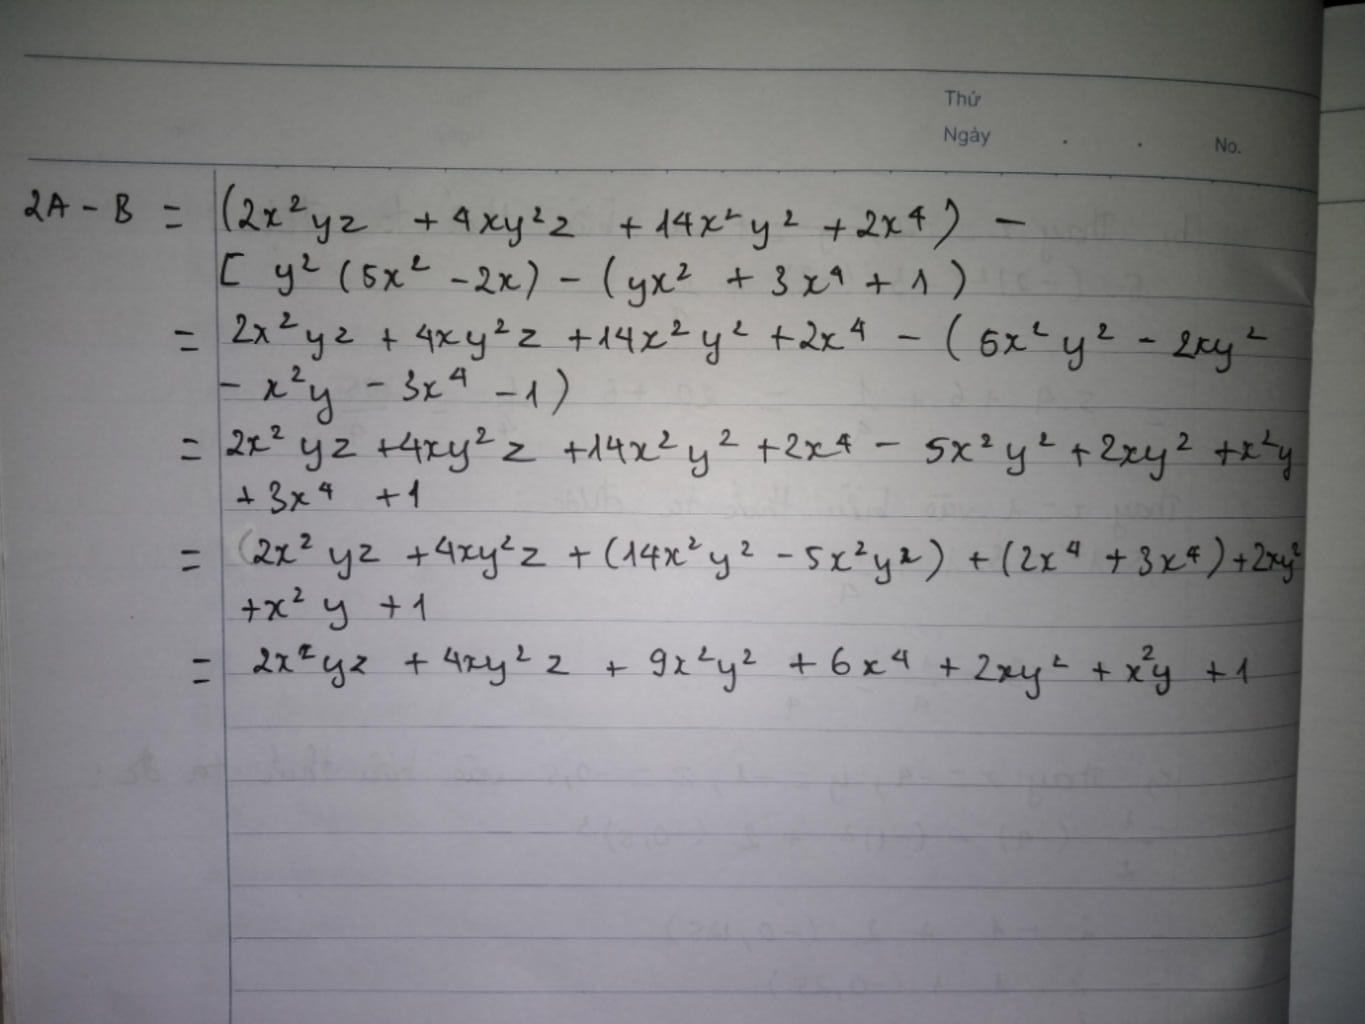 Thứ
Ngày . . No.
2A - B = (2x²yz + 4xy²z + 14x²y² + 2x⁴) -
[ y² (5x² - 2x) - (yx² + 3x⁴ + 1)
= 2x²yz + 4xy²z + 14x²y² + 2x⁴ - ( 5x²y² - 2xy²
- x²y - 3x⁴ - 1)
= 2x²yz + 4xy²z + 14x²y² + 2x⁴ - 5x²y² + 2xy² + x²y
+ 3x⁴ + 1
= (2x²yz + 4xy²z + (14x²y² - 5x²y²) + (2x⁴ + 3x⁴) + 2xy²
+ x²y + 1
= 2x²yz + 4xy²z + 9x²y² + 6x⁴ + 2xy² + x²y + 1